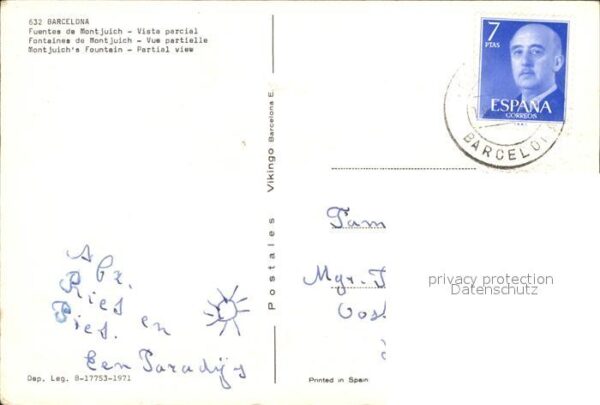 632 BARCELONA
Fuentes de Montjuich - Vista parcial
Fontaines de Montjuich - Vue partielle
Montjuich's Fountain - Partial view
Postales Vikingo Barcelona E.
7
PTAS
ESPAÑA
CORREOS
BARCELO
Fam
Mgr.
Oost
privacy protection
Datenschutz
Ries
Pies. en
Een Paradijs
Dep. Leg. B-17753-1971
Printed in Spain